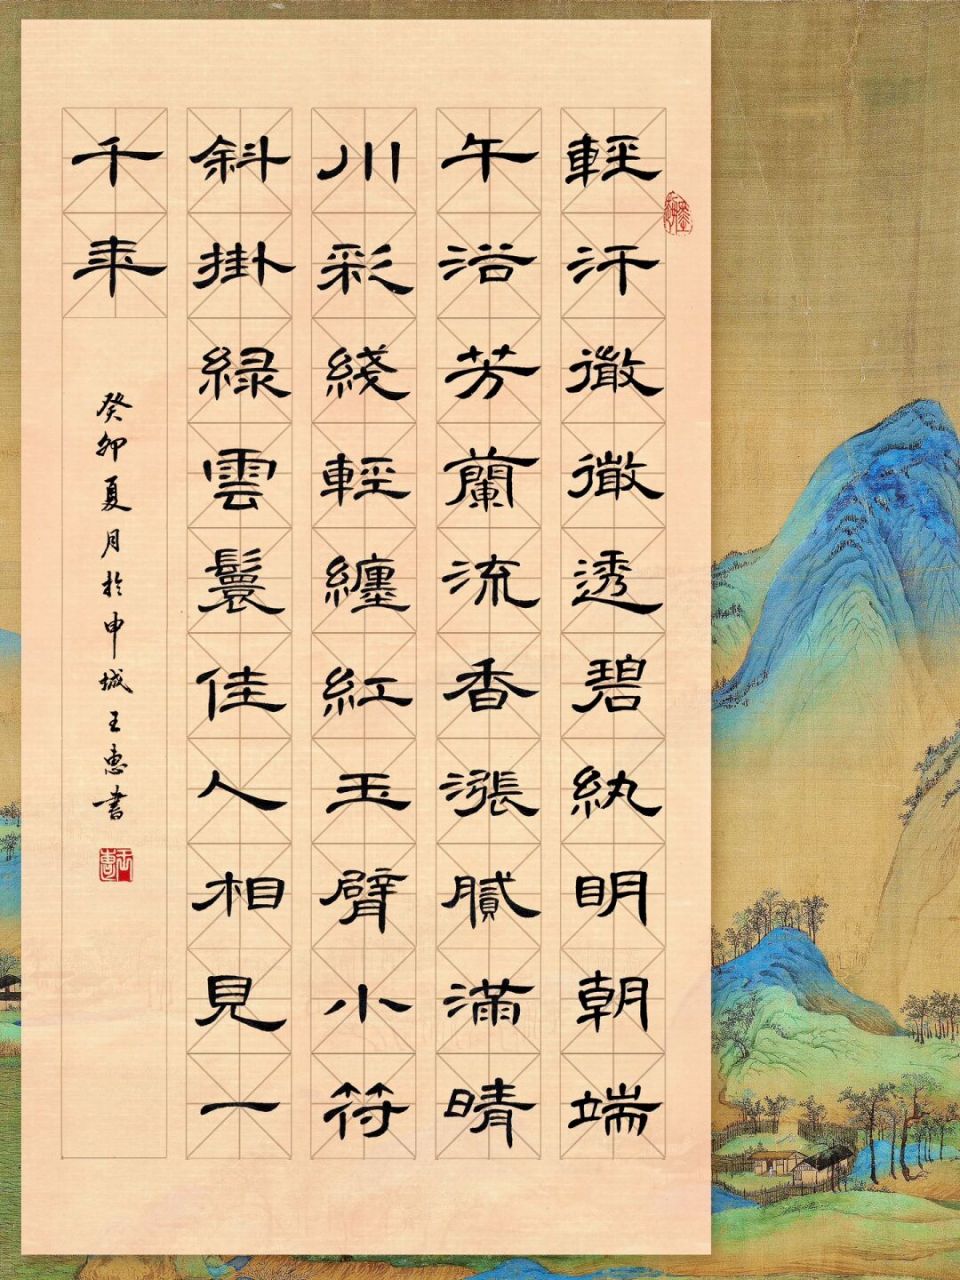 輕汗微微透碧紈眀朝端
午浴芳蘭流香漲膩滿晴
川彩綫輕纏紅玉臂小符
斜掛緑雲鬟佳人相見一
千年
癸卯夏月於申城王惠書